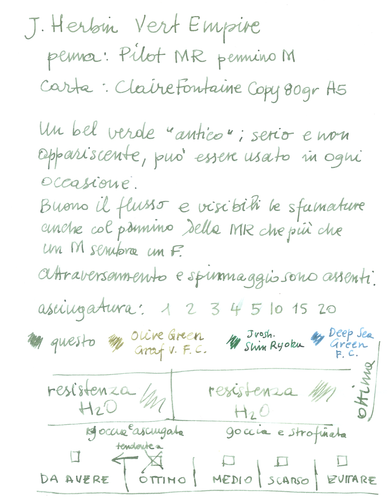 J. Herbin Vert Empire
penna: Pilot MR pennino M
carta: Clairefontaine Copy 80gr A5
Un bel verde "antico"; serio e non
appariscente, può essere usato in ogni
occasione.
Buono il flusso e visibili le sfumature
anche col pennino della MR che più che
un M sembra un F.
attraversamento e spiumaggio sono assenti.
asciugatura: 1 2 3 4 5 10 15 20
questo
Olive Green
Graf V. F.C.
Irosh.
Shin Ryoku
Deep Sea
Green
F.C.
resistenza
H2O
resistenza
H2O
ottima
goccia e asciugata
goccia e strofinata
tendente a
DA AVERE
OTTIMO
MEDIO
SCARSO
EVITARE